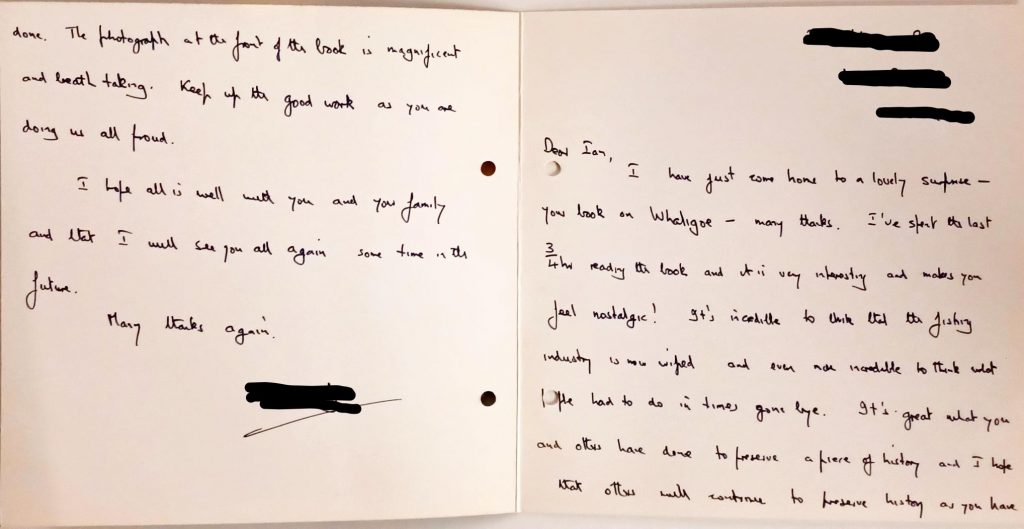 Dear Ian,
I have just come home to a lovely surprise —
your book on Whaligoe — many thanks. I've spent the last
3/4 hr reading the book and it is very interesting and makes you
feel nostalgic! It's incredible to think that the fishing
industry is now wiped and even more incredible to think what
people had to do in times gone bye. It's great what you
and others have done to preserve a piece of history and I hope
that others will continue to preserve history as you have
done. The photograph at the front of the book is magnificent
and breath taking. Keep up the good work as you are
doing us all proud.
I hope all is well with you and your family
and that I will see you all again some time in the
future.
Many thanks again.